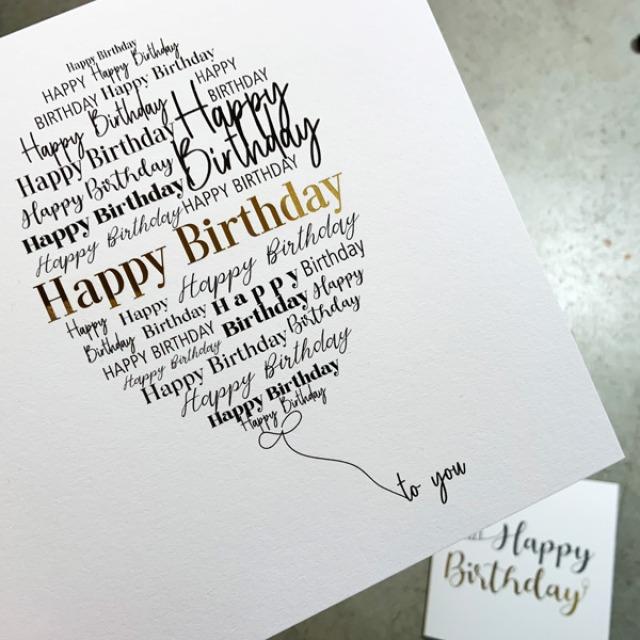 Happy Birthday
HAPPY Happy Birthday
BIRTHDAY Happy Birthday
HAPPY
BIRTHDAY
Happy Birthday
Happy
Birthday
Happy Birthday
Happy Birthday
Happy Birthday
HAPPY BIRTHDAY
Happy Birthday
Happy Birthday
Happy Birthday
Happy
Birthday
Happy
Birthday
Happy Birthday
HAPPY BIRTHDAY
Birthday
Happy
Birthday
Happy Birthday
Happy Birthday
Happy Birthday
Happy Birthday
Happy Birthday
to you
Happy
Birthday